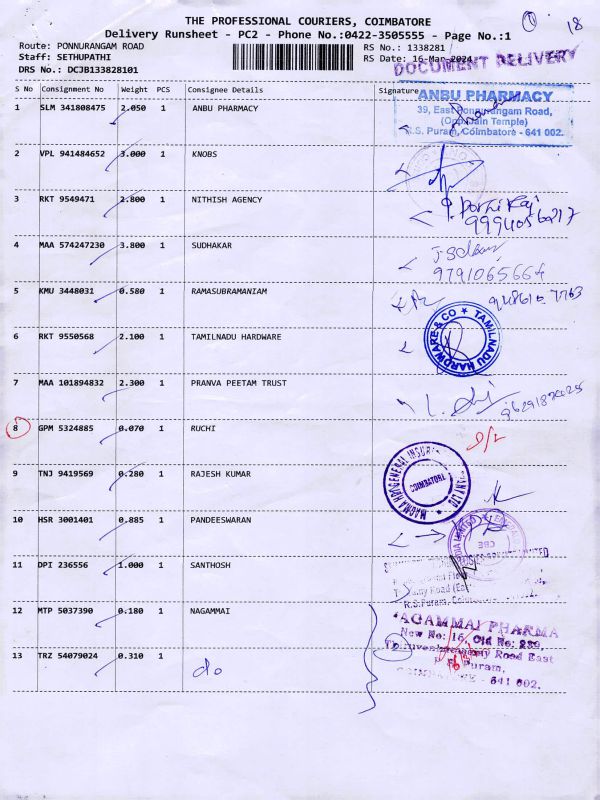 THE PROFESSIONAL COURIERS, COIMBATORE
Delivery Runsheet - PC2 - Phone No.:0422-3505555 - Page No.:1
1 18
Route: PONNURANGAM ROAD RS No.: 1338281
Staff: SETHUPATHI RS Date: 16-Mar-2024
DOCUMENT DELIVERY
DRS No.: DCJB133828101
S No Consignment No Weight PCS Consignee Details Signature
1 SLM 341808475 2.050 1 ANBU PHARMACY
ANBU PHARMACY
39, East Ponnurangam Road,
(Opp. Jain Temple)
R.S. Puram, Coimbatore - 641 002.
2 VPL 941484652 3.000 1 KNOBS
3 RKT 9549471 2.800 1 NITHISH AGENCY
4 MAA 574247230 3.800 1 SUDHAKAR
9791065664
5 KMU 3448031 0.580 1 RAMASUBRAMANIAM
6 RKT 9550568 2.100 1 TAMILNADU HARDWARE
TAMILNADU HARDWARE & CO
7 MAA 101894832 2.300 1 PRANVA PEETAM TRUST
8 GPM 5324885 0.070 1 RUCHI
9 TNJ 9419569 0.280 1 RAJESH KUMAR
MAGMA HDI GENERAL INSUR
COIMBATORE
10 HSR 3001401 0.885 1 PANDEESWARAN
CBE
11 DPI 236556 1.000 1 SANTHOSH
R.S.Puram,
12 MTP 5037390 0.180 1 NAGAMMAI
AGAMMAI PHARMA
New No: 16, Old No: 239,
Road East
Puram,
- 641 002.
13 TRZ 54079024 0.310 1 do